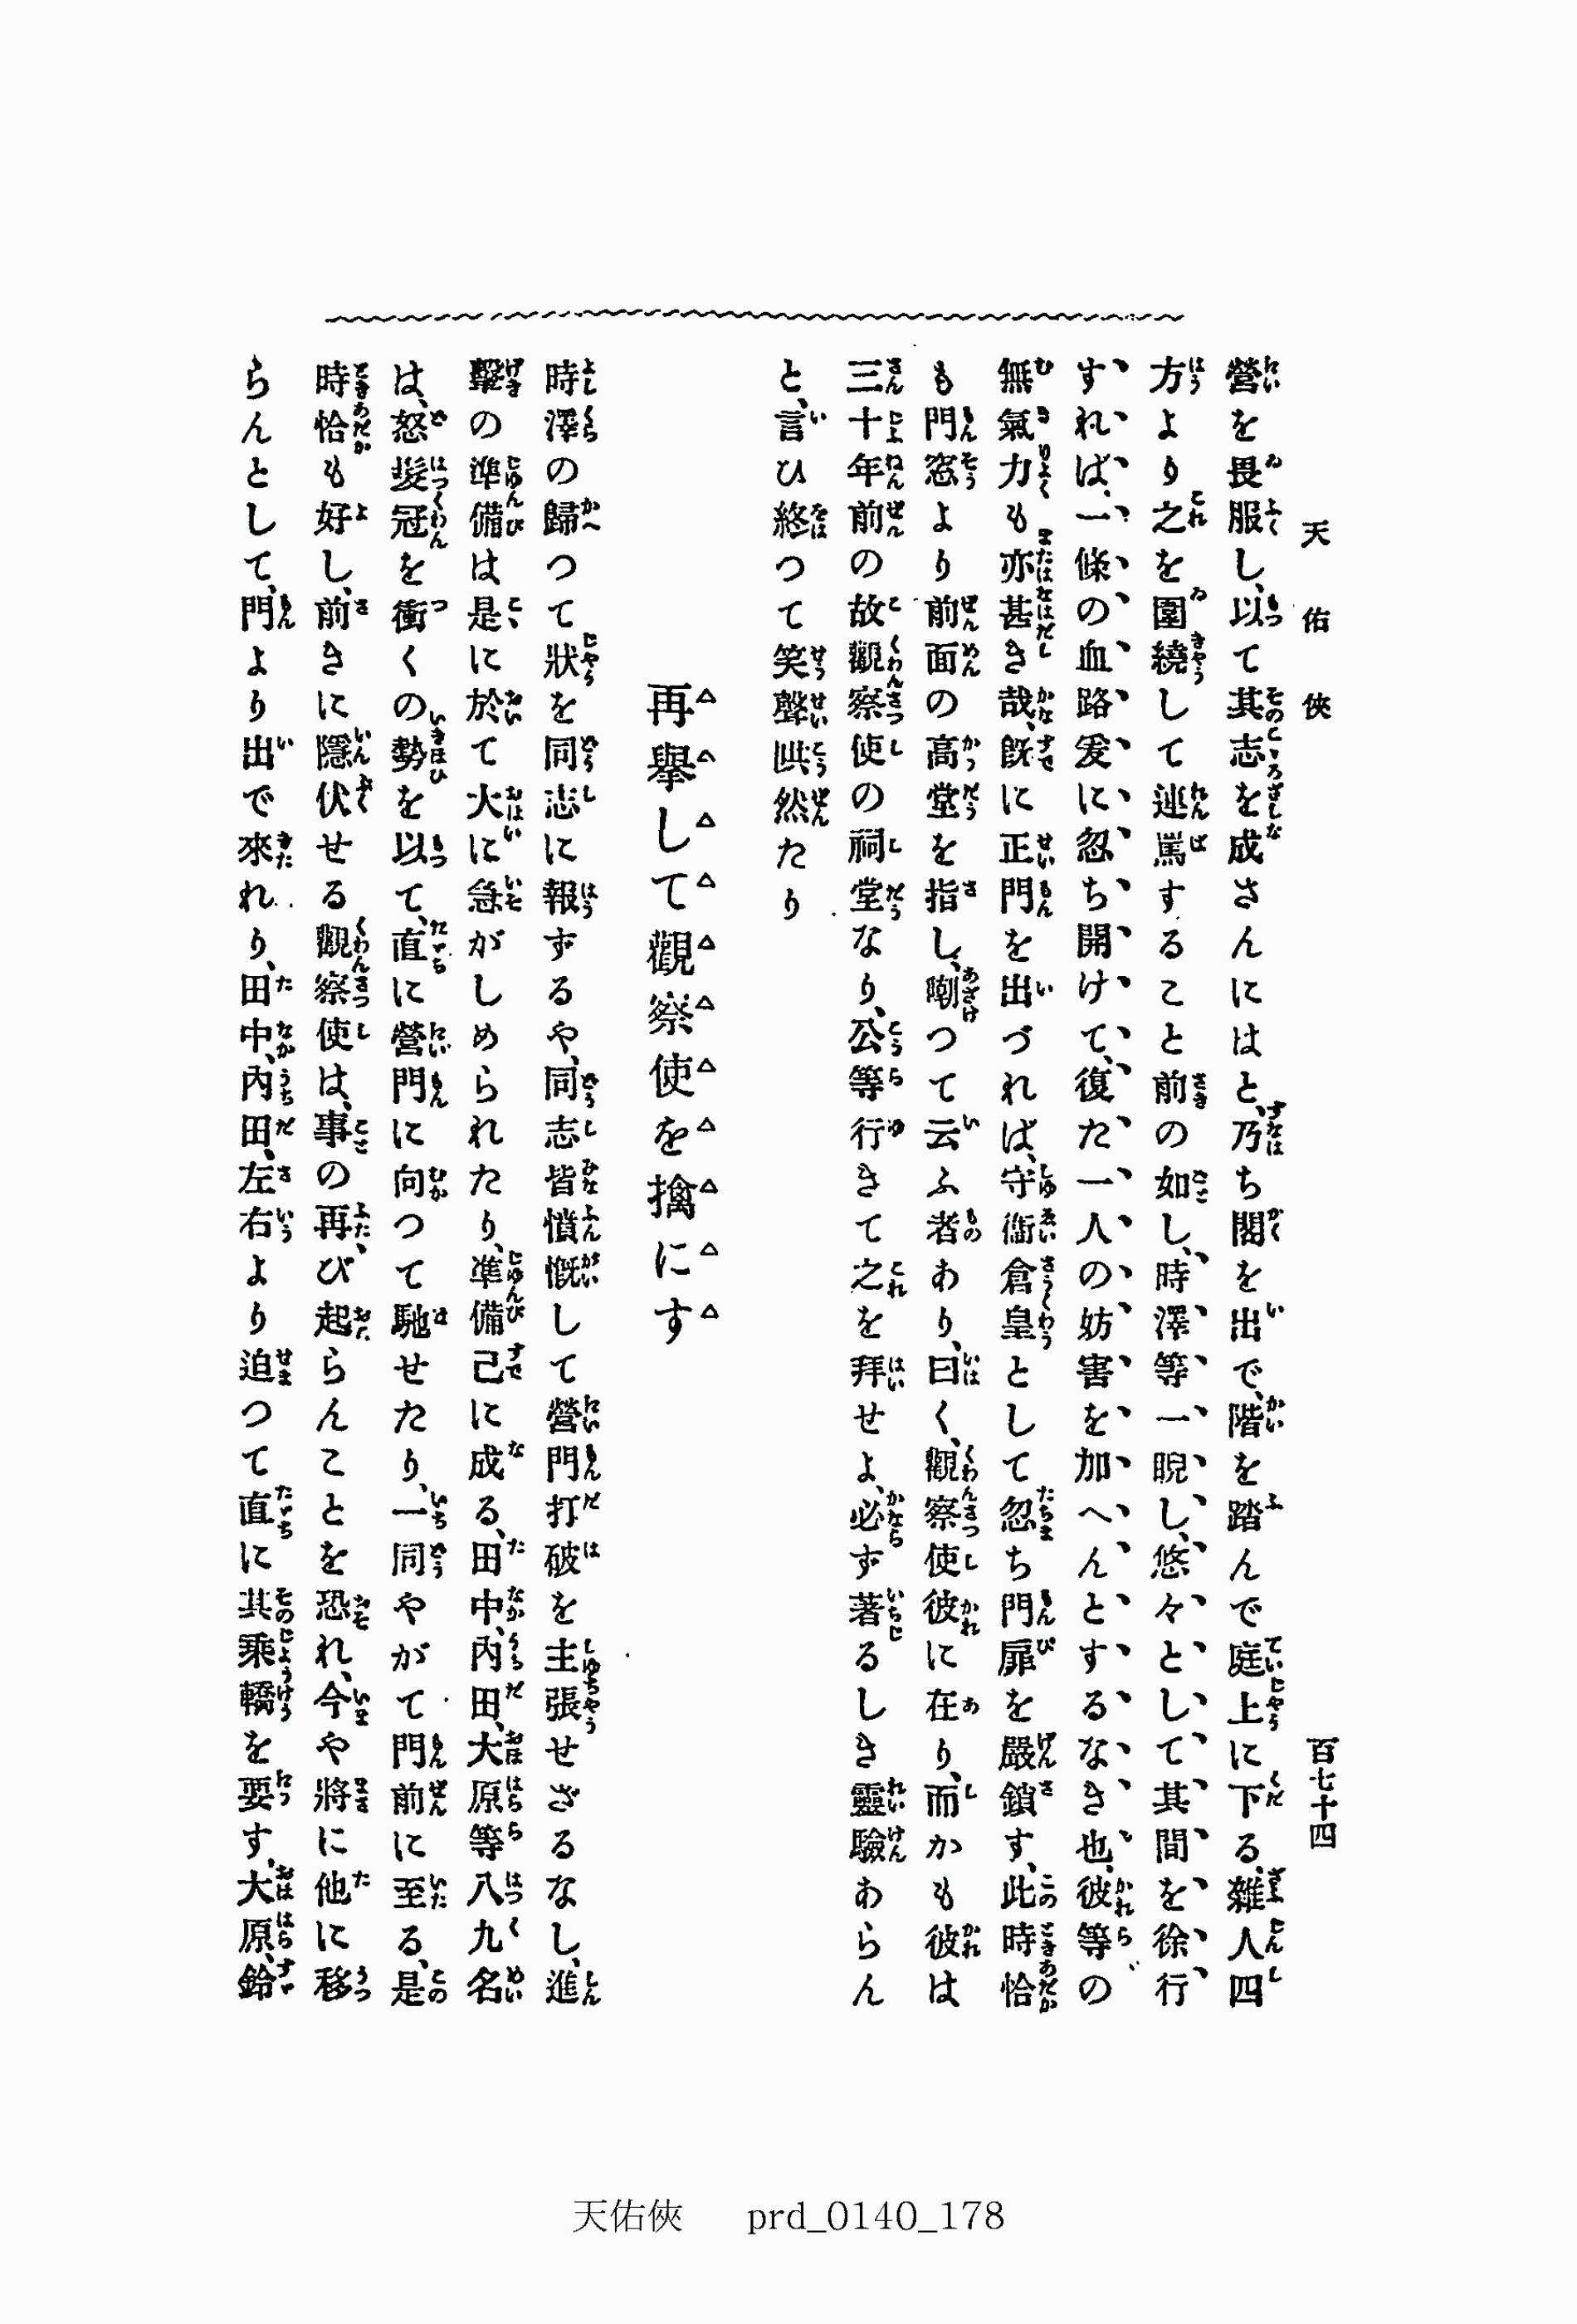 天佑俠
百七十四
營を畏服し、以て其志を成さんにはと、乃ち閣を出で、階を踏んで庭上に下る、雑人四
方より之を圍繞して連罵すること前の如し、時澤等一睨し、悠々として其間を徐行
すれば、一條の血路爰に忽ち開けて、復た一人の妨害を加へんとするなき也、彼等の
無氣力も亦甚き哉、既に正門を出づれば、守衞倉皇として忽ち門扉を嚴鎖す、此時恰
も門窓より前面の高堂を指し、嘲つて云ふ者あり、曰く、觀察使彼に在り、而かも彼は
三十年前の故觀察使の祠堂なり、公等行きて之を拜せよ、必ず著るしき靈驗あらん
と、言ひ終つて笑聲哄然たり
再擧して觀察使を擒にす
時澤の歸つて狀を同志に報ずるや、同志皆憤慨して營門打破を主張せざるなし、進
擊の準備は是に於て大に急がしめられたり、準備已に成る、田中、內田、大原等八九名
は、怒髮冠を衝くの勢を以て、直に營門に向つて馳せたり、一同やがて門前に至る、是
時恰も好し、前きに隱伏せる觀察使は、事の再び起らんことを恐れ、今や將に他に移
らんとして、門より出で來れり、田中、內田、左右より迫つて直に其乘轎を要す、大原、鈴
天佑俠 prd_0140_178